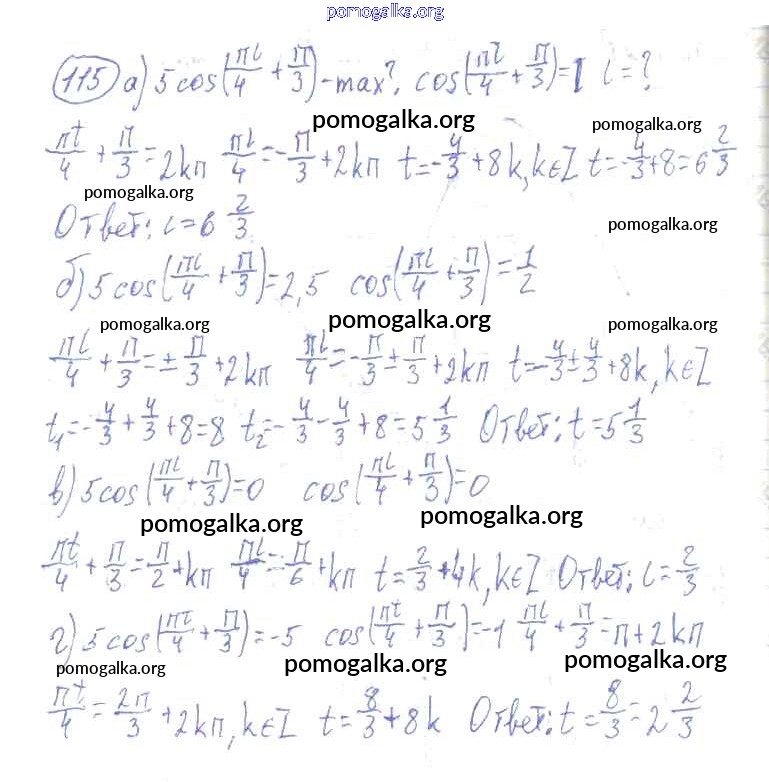 pomogalka.org
115 а) 5cos(πt/4 + π/3) - max?, cos(πt/4 + π/3) = 1 t = ?
pomogalka.org pomogalka.org
πt/4 + π/3 = 2kπ πt/4 = -π/3 + 2kπ t = -4/3 + 8k, k∈Z t = -4/3 + 8 = 6 2/3
pomogalka.org
Ответ: t = 6 2/3
pomogalka.org
б) 5cos(πt/4 + π/3) = 2,5 cos(πt/4 + π/3) = 1/2
pomogalka.org pomogalka.org pomogalka.org
πt/4 + π/3 = ±π/3 + 2kπ πt/4 = -π/3 ± π/3 + 2kπ t = -4/3 ± 4/3 + 8k, k∈Z
t₁ = -4/3 + 4/3 + 8 = 8 t₂ = -4/3 - 4/3 + 8 = 5 1/3 Ответ: t = 5 1/3
в) 5cos(πt/4 + π/3) = 0 cos(πt/4 + π/3) = 0
pomogalka.org pomogalka.org
πt/4 + π/3 = π/2 + kπ πt/4 = π/6 + kπ t = 2/3 + 4k, k∈Z Ответ: t = 2/3
г) 5cos(πt/4 + π/3) = -5 cos(πt/4 + π/3) = -1 πt/4 + π/3 = π + 2kπ
pomogalka.org pomogalka.org pomogalka.org
πt/4 = 2π/3 + 2kπ, k∈Z t = 8/3 + 8k Ответ: t = 8/3 = 2 2/3